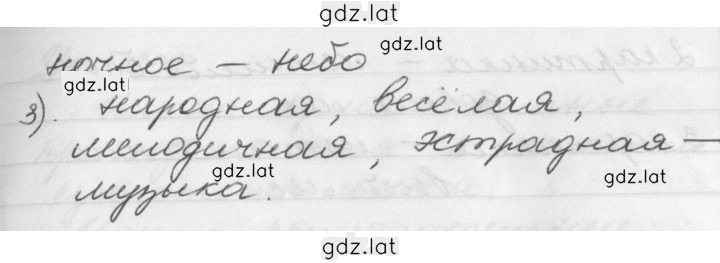 gdz.lat
ночное – небо gdz.lat
gdz.lat
3). народная, весёлая,
мелодичная, эстрадная –
gdz.lat gdz.lat
музыка.
gdz.lat